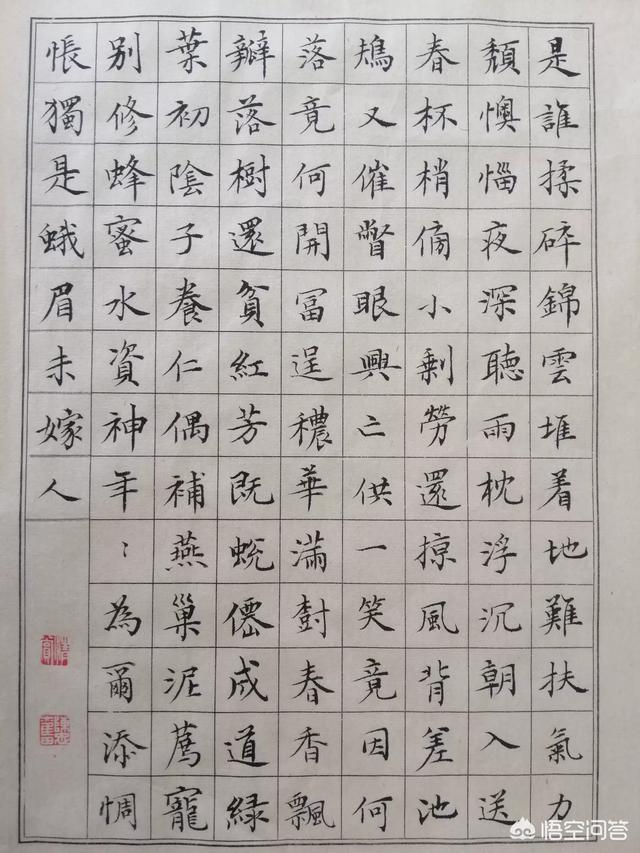 是誰揉碎錦雲堆着地難扶氣力
頹懊惱夜深聽雨枕浮沉朝入送
春杯梢傍小剩勞還掠風背差池
鳩又催瞥眼興亡供一笑竟因何
落竟何開冨逞穠華滿樹春香飄
瓣落樹還貧紅芳既蛻僊成道綠
葉初陰子養仁偶補燕巢泥薦寵
別修蜂蜜水資神年〻為爾添惆
悵獨是蛾眉未嫁人
悟空问答